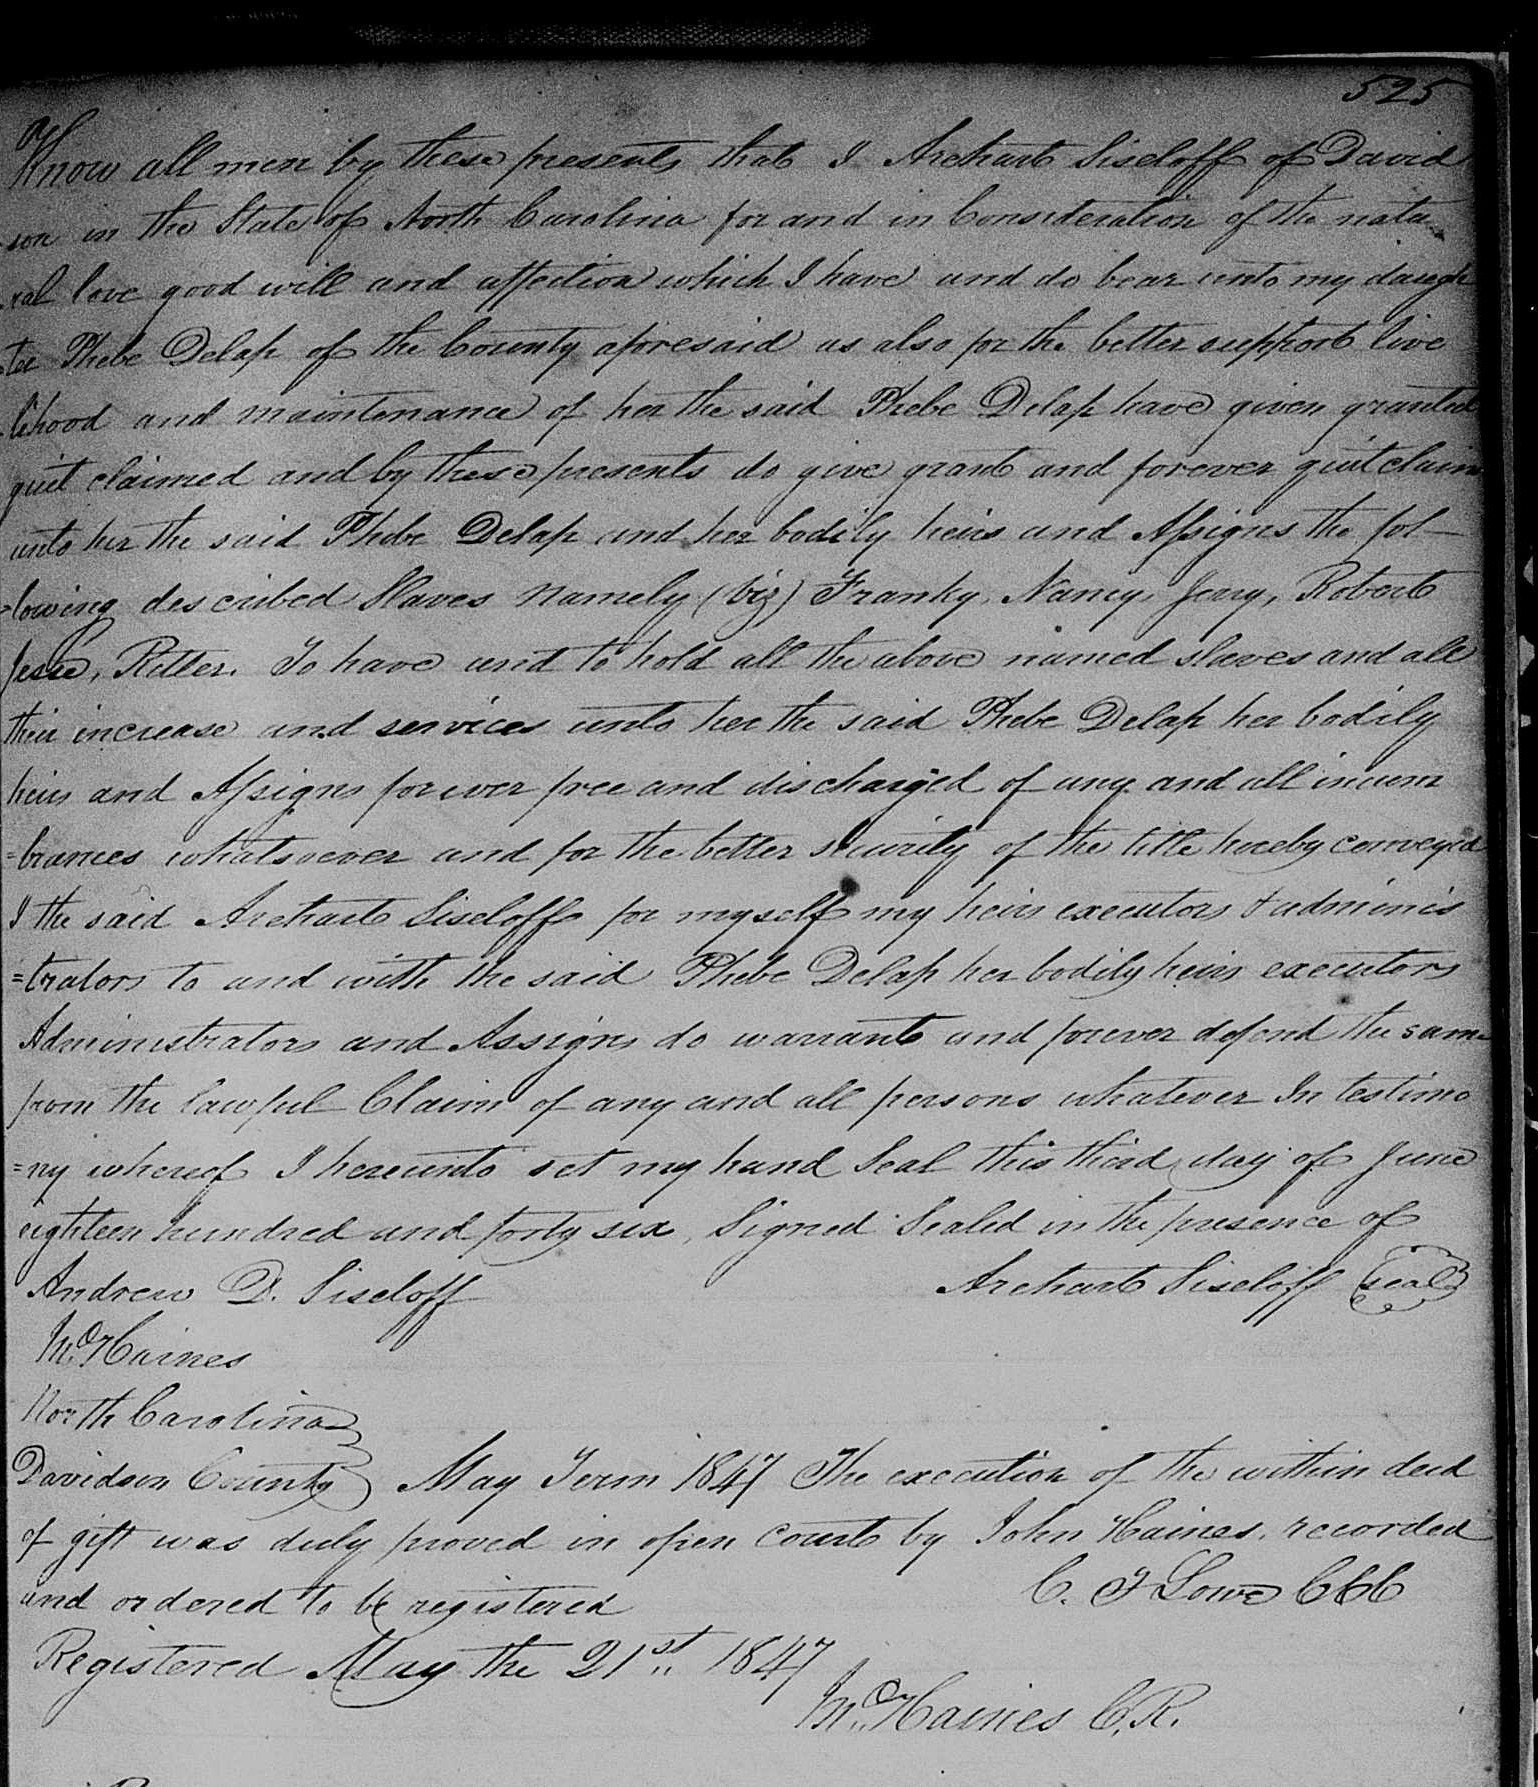 525
Know all men by these presents that I Archart Siseloff of David
-son in the State of North Carolina for and in Consideration of the natu
-ral love good will and affection which I have and do bear unto my daugh
-ter Phebe Delap of the County aforesaid as also for the better support live
-lihood and maintenance of her the said Phebe Delap have given granted
quit claimed and by these presents do give grant and forever quitclaim
unto her the said Phebe Delap and her bodily heirs and Assigns the fol-
=lowing described Slaves Namely (viz) Franky, Nancy, Jerry, Robert
Jesse, Ritter. To have and to hold all the above named slaves and all
their increase and services unto her the said Phebe Delap her bodily
heirs and Assigns forever free and discharged of any and all incum
=brances whatsoever and for the better security of the title hereby conveyed
I the said Archart Siseloff for myself my heirs executors & adminis
=trators to and with the said Phebe Delap her bodily heirs executors
Administrators and Assigns do warrant and forever defend the same
from the lawful Claim of any and all persons whatever In testimo
=ny whereof I hereunto set my hand Seal this third day of June
eighteen hundred and forty six, Signed Sealed in the presence of
Andrew D. Siseloff Archart Siseloff (seal)
Jno Haines
North Carolina
Davidson County May Term 1847 The execution of the within deed
of gift was duly proved in open court by John Haines, recorded
and ordered to be registered C. F Lowe CCC
Registered May the 21st 1847
Jno Haines C.R.